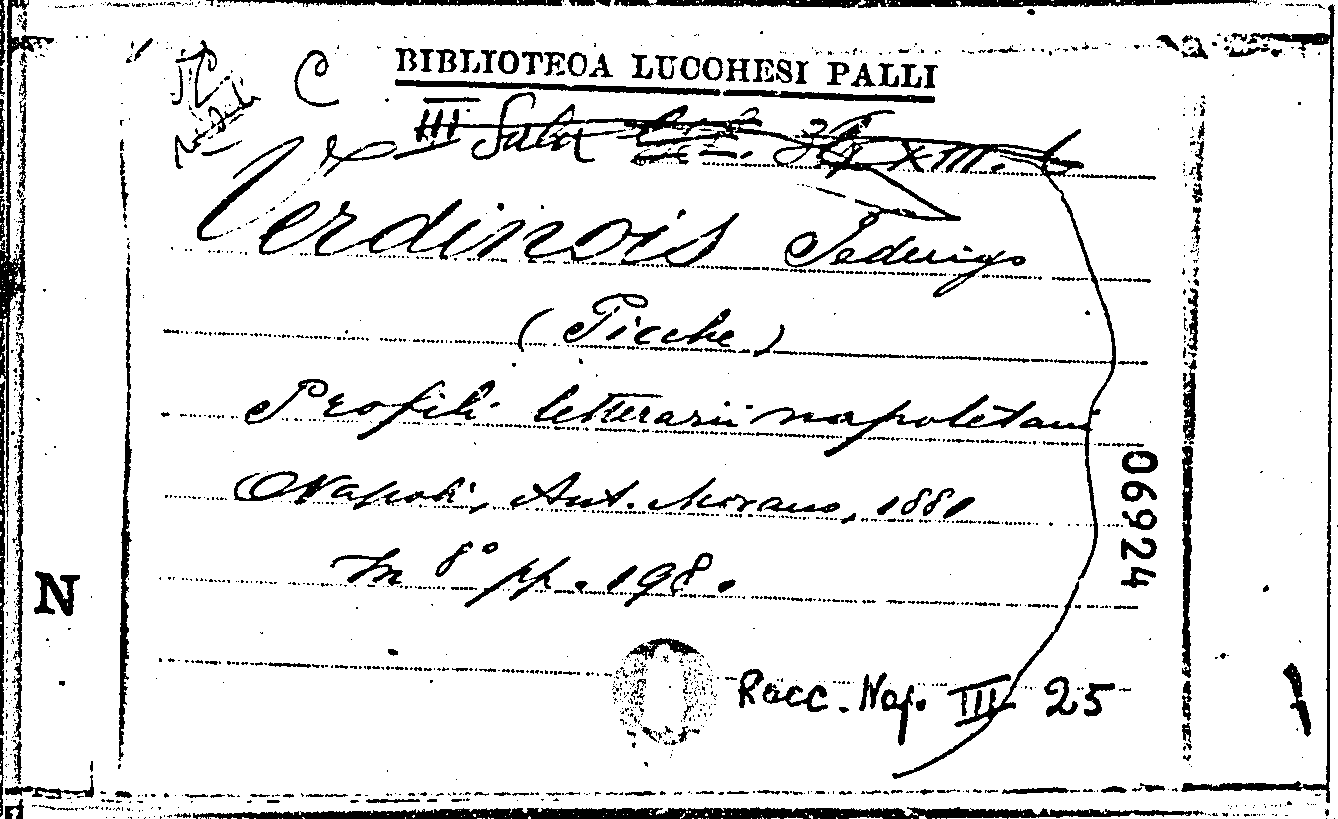 C
BIBLIOTECA LUCCHESI PALLI
III Sala XIII. 6
Verdinois Federigo
(Picche)
Profili letterarii napoletani
Napoli, Ant. Morano, 1881
In 8° pp. 198.
06924
N
Racc. Nap. III 25